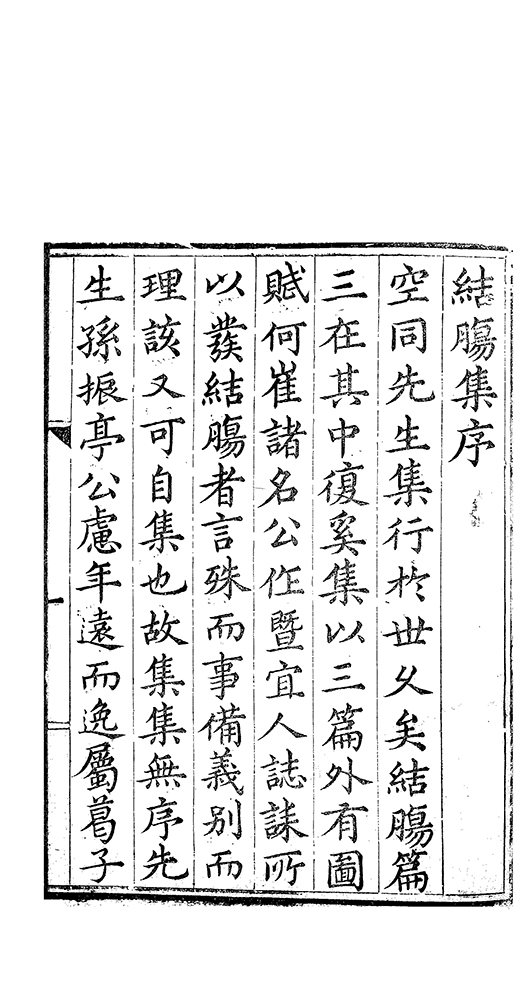 結腸集序
空同先生集行於世乆矣結腸篇
三在其中復奚集以三篇外有圖
賦何崔諸名公作暨宜人誌誄所
以發結腸者言殊而事備義别而
理該又可自集也故集集無序先
生孫振亭公慮年遠而逸屬葛子